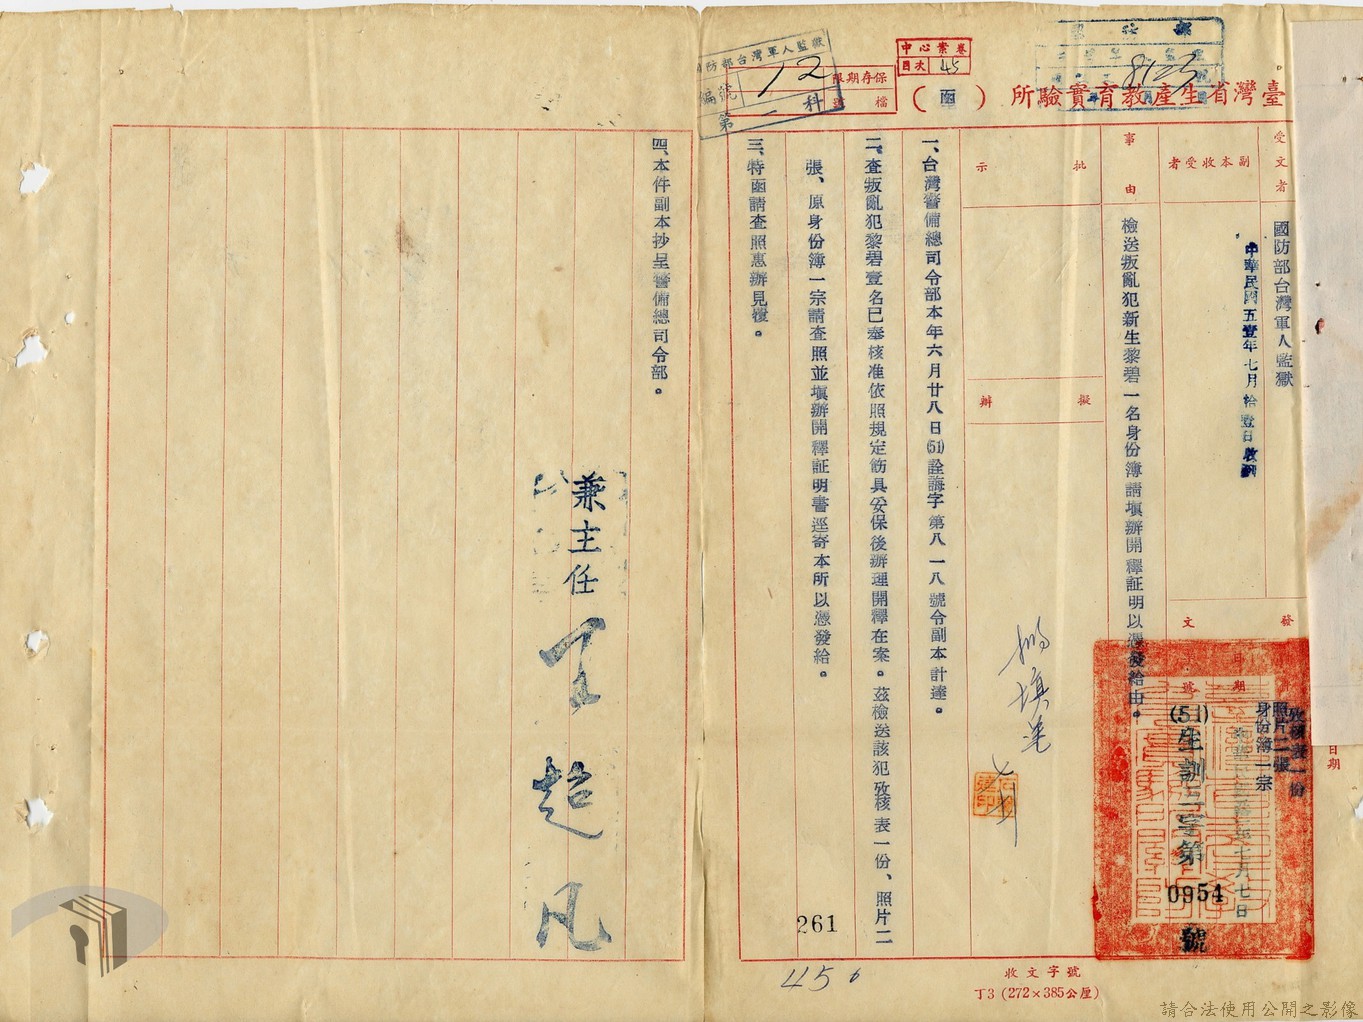 臺灣省生產教育實驗所(函)
保存期限
檔號
中心案卷
目次 45
國防部台灣軍人監獄
編號 12
第一科
8123
受文者
國防部台灣軍人監獄
副本收受者
中華民國五壹年七月拾壹日收到
發文
日期
七月七日
號
(51)生訓二字第0954號
攷核表一份
照片二張
身份簿一宗
日期
事由
檢送叛亂犯新生黎碧一名身份簿請填辦開釋証明以憑發給由。
批示
擬辦
一、台灣警備總司令部本年六月廿八日(51)詮誨字第八一八號令副本計達。
二、查叛亂犯黎碧壹名已奉核准依照規定飭具妥保後辦理開釋在案。茲檢送該犯攷核表一份、照片二
張、原身份簿一宗請查照並填辦開釋証明書逕寄本所以憑發給。
三、特函請查照惠辦見覆。
四、本件副本抄呈警備總司令部。
兼主任 王超凡
261
456
收文字號
丁3(272×385公厘)
請合法使用公開之影像